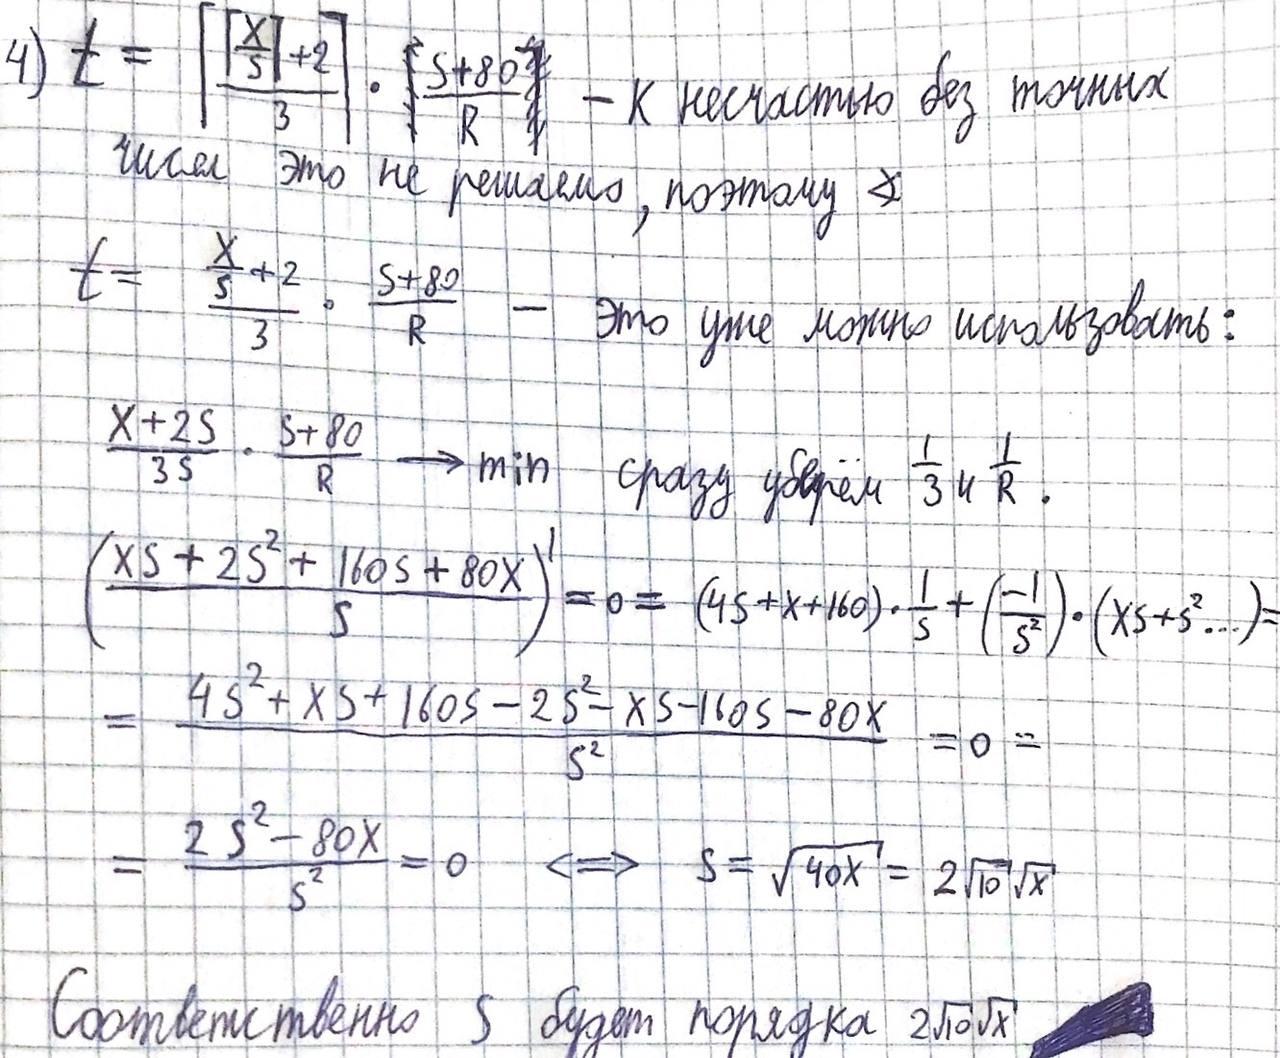 4) t = ⌈(⌈X/S⌉+2)/3⌉ · (S+80)/R – К несчастью без точных
чисел это не решаемо, поэтому
t = (X/S+2)/3 · (S+80)/R – это уже можно использовать:
(X+2S)/3S · (S+80)/R → min сразу уберём 1/3 и 1/R.
((XS+2S²+160S+80X)/S)' = 0 = (4S+X+160)·1/S+(-1/S²)·(XS+S²...)=
= (4S²+XS+160S-2S²-XS-160S-80X)/S² = 0 =
= (2S²-80X)/S² = 0 <=> S = √40X = 2√10√X
Соответственно S будет порядка 2√10√X